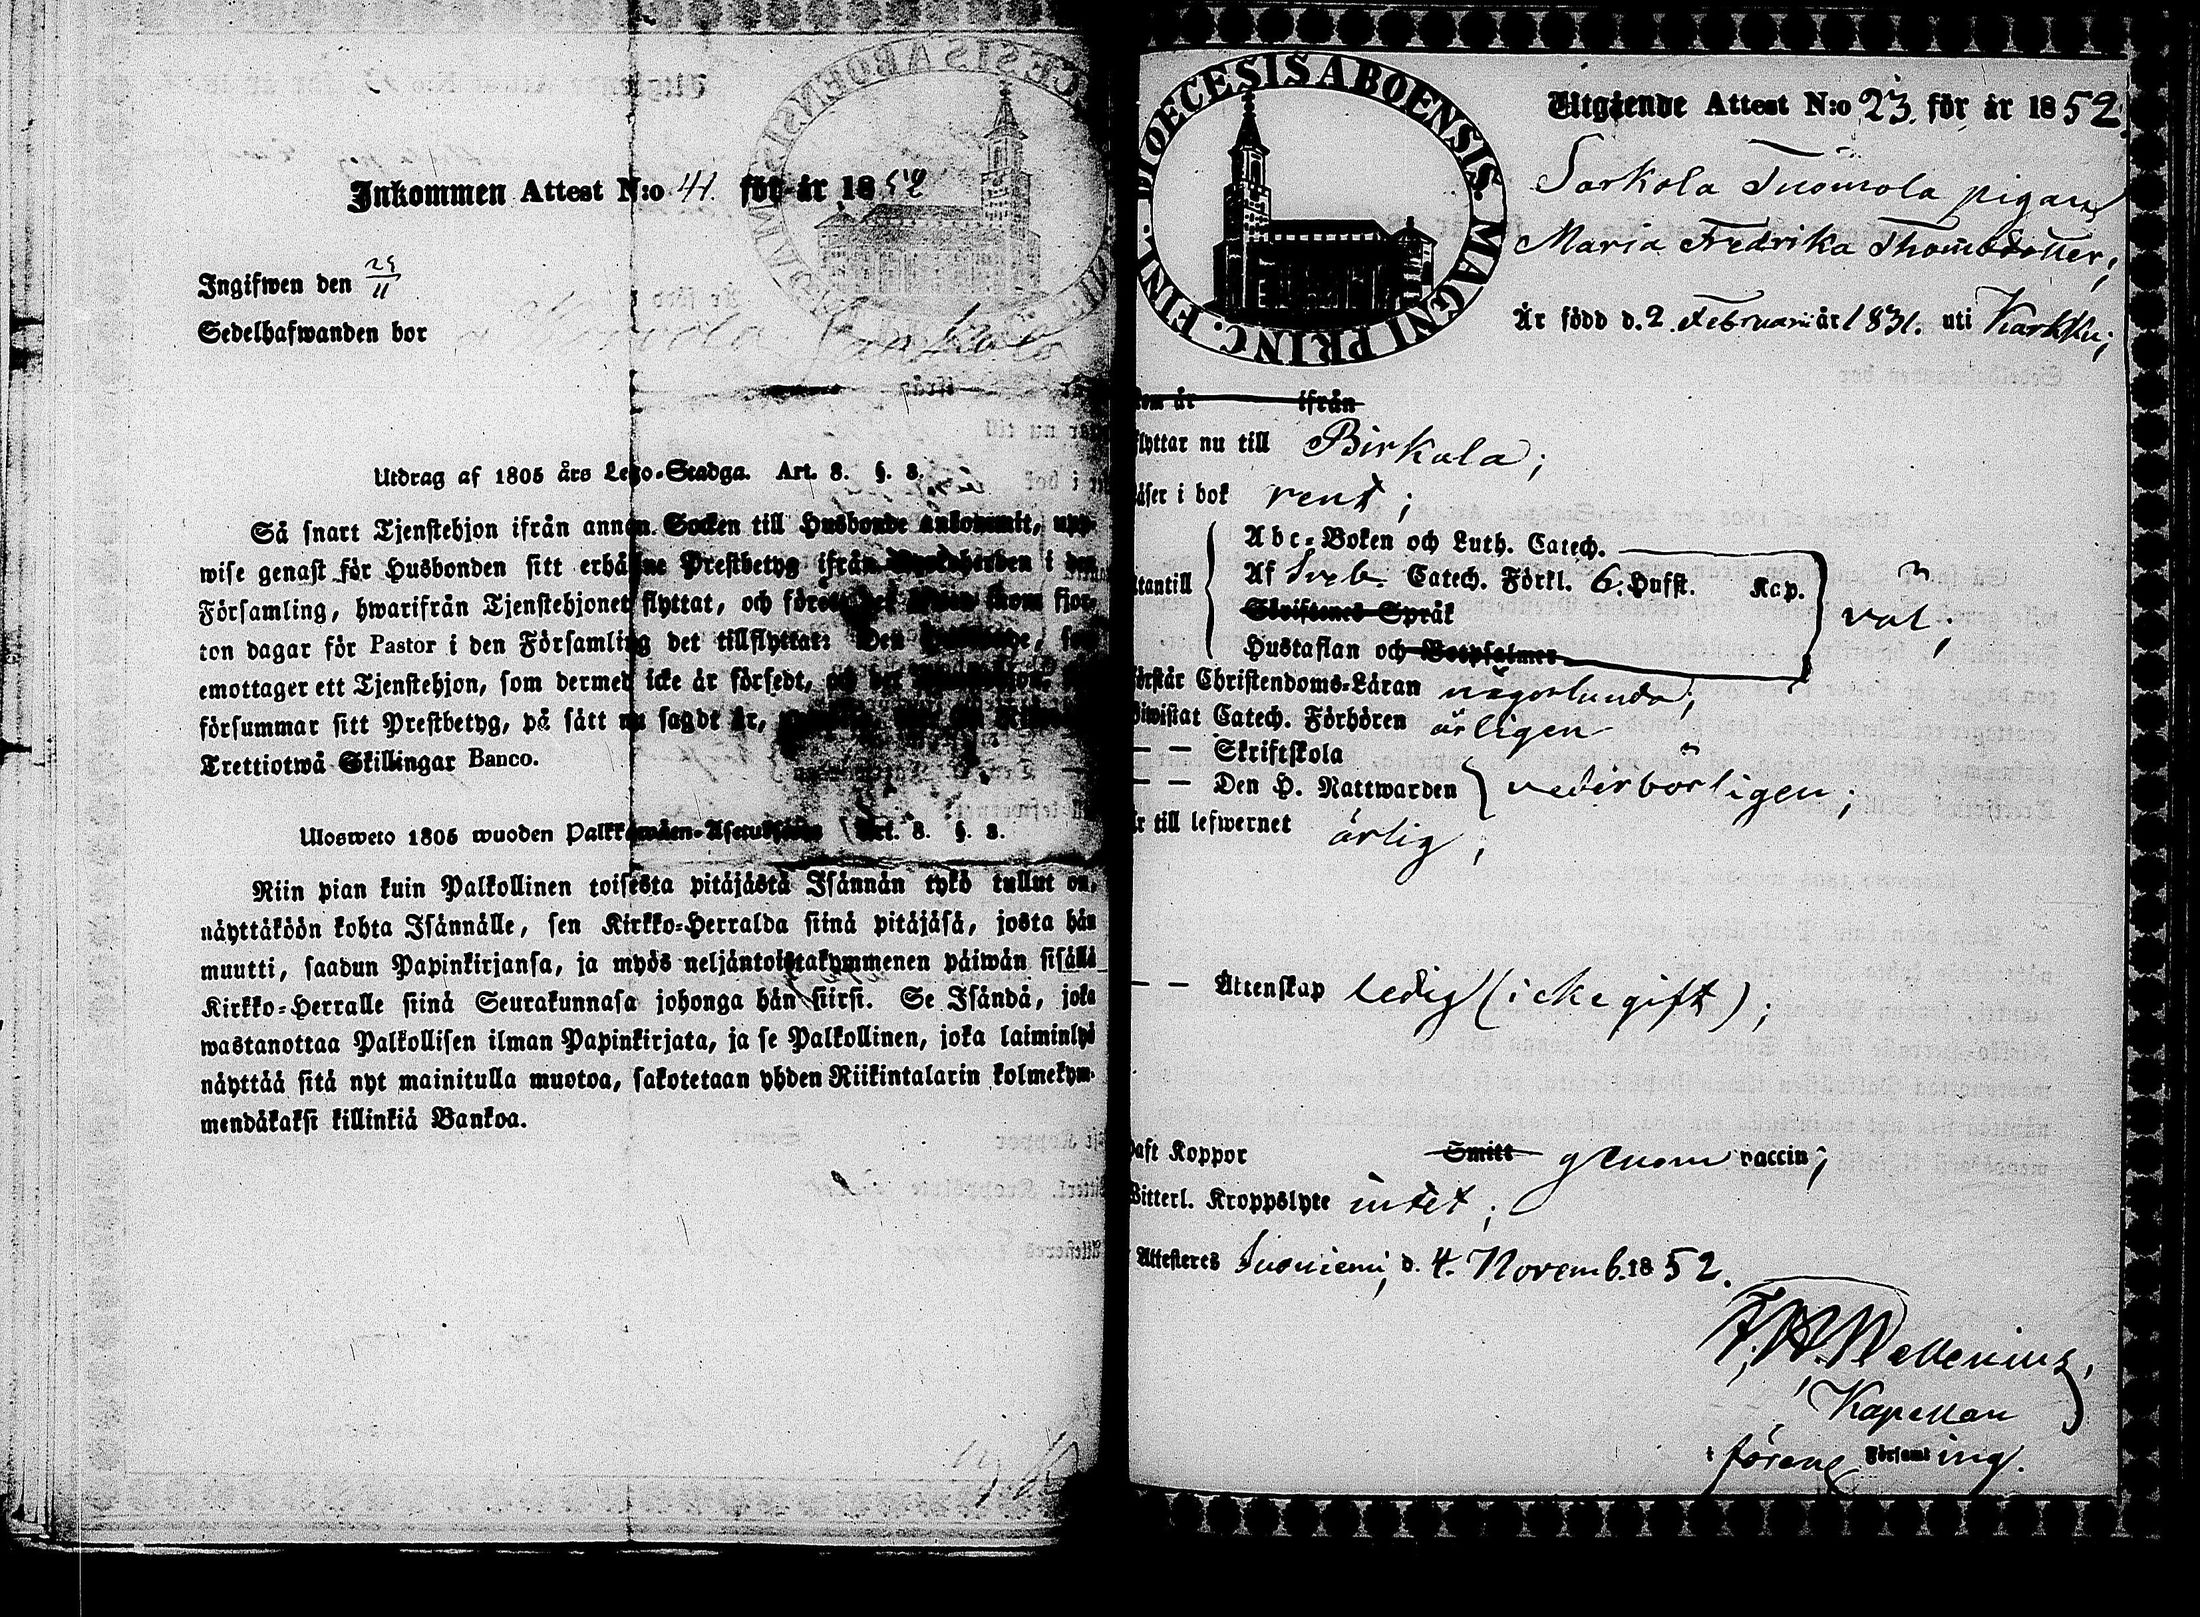 Inkommen Attest N:o 41. för år 1852
Ingifwen den 25/11
Sedelhafwanden bor
Utdrag af 1805 års Lego-Stadga. Art. 8. §. 8.
Så snart Tjenstehjon ifrån annan Socken till Husbonde ankommit, upp-
wise genast för Husbonden sitt erhållne Prestbetyg ifrån i den
Församling, hwarifrån Tjenstehjonet flyttat, och inom fjor-
ton dagar för Pastor i den Församling det tillflyttat: Den
emottager ett Tjenstehjon, som dermed icke är försedt,
försummar sitt Prestbetyg, på sätt nu sagdt är,
Trettiotwå Skillingar Banco.
Ulosweto 1805 wuoden Palkkawäen-Asetuksesta Art. 8. §. 8.
Niin pian kuin Palkollinen toisesta pitäjästä Isännän tykö tullut on,
näyttäköön kohta Isännälle, sen Kirkko-Herralda siinä pitäjäsä, josta hän
muutti, saadun Papinkirjansa, ja myös neljäntoistakymmenen päiwän sisällä
Kirkko-Herralle siinä Seurakunnasa johonga hän siirsi. Se Isändä, joka
wastanottaa Palkollisen ilman Papinkirjata, ja se Palkollinen, joka laiminlyö
näyttää sitä nyt mainitulla muotoa, sakotetaan yhden Riikintalarin kolmekym-
mendäkaksi killinkiä Bankoa.
DIOECESIS ABOENSIS. MAGNI PRINC. FINL.
Utgående Attest N:o 23. för år 1852.
Sarkola Tuomola pigan
Maria Fredrika Thomsdotter,
Är född d. 2. Februari år 1831. uti Karkku;
kom år ifrån
flyttar nu till Birkala;
läser i bok rent;
Abc-Boken och Luth. Catech.
utantill Af Sveb. Catech. Förkl. 6. Hufst. Kap. väl;
Skriftenes Språk
Hustaflan och Botpsalmer
förstår Christendoms-Läran någorlunda;
biwistat Catech. Förhören årligen
— — Skriftskola
— — Den H. Nattwarden vederbörligen;
är till lefwernet ärlig;
— — Äktenskap ledig (icke gift);
haft Koppor Smitt genom vaccin;
Witterl. Kroppslyte intet;
Attesteres Suoniemi, d. 4. Novemb. 1852.
Kapellan
Församling.